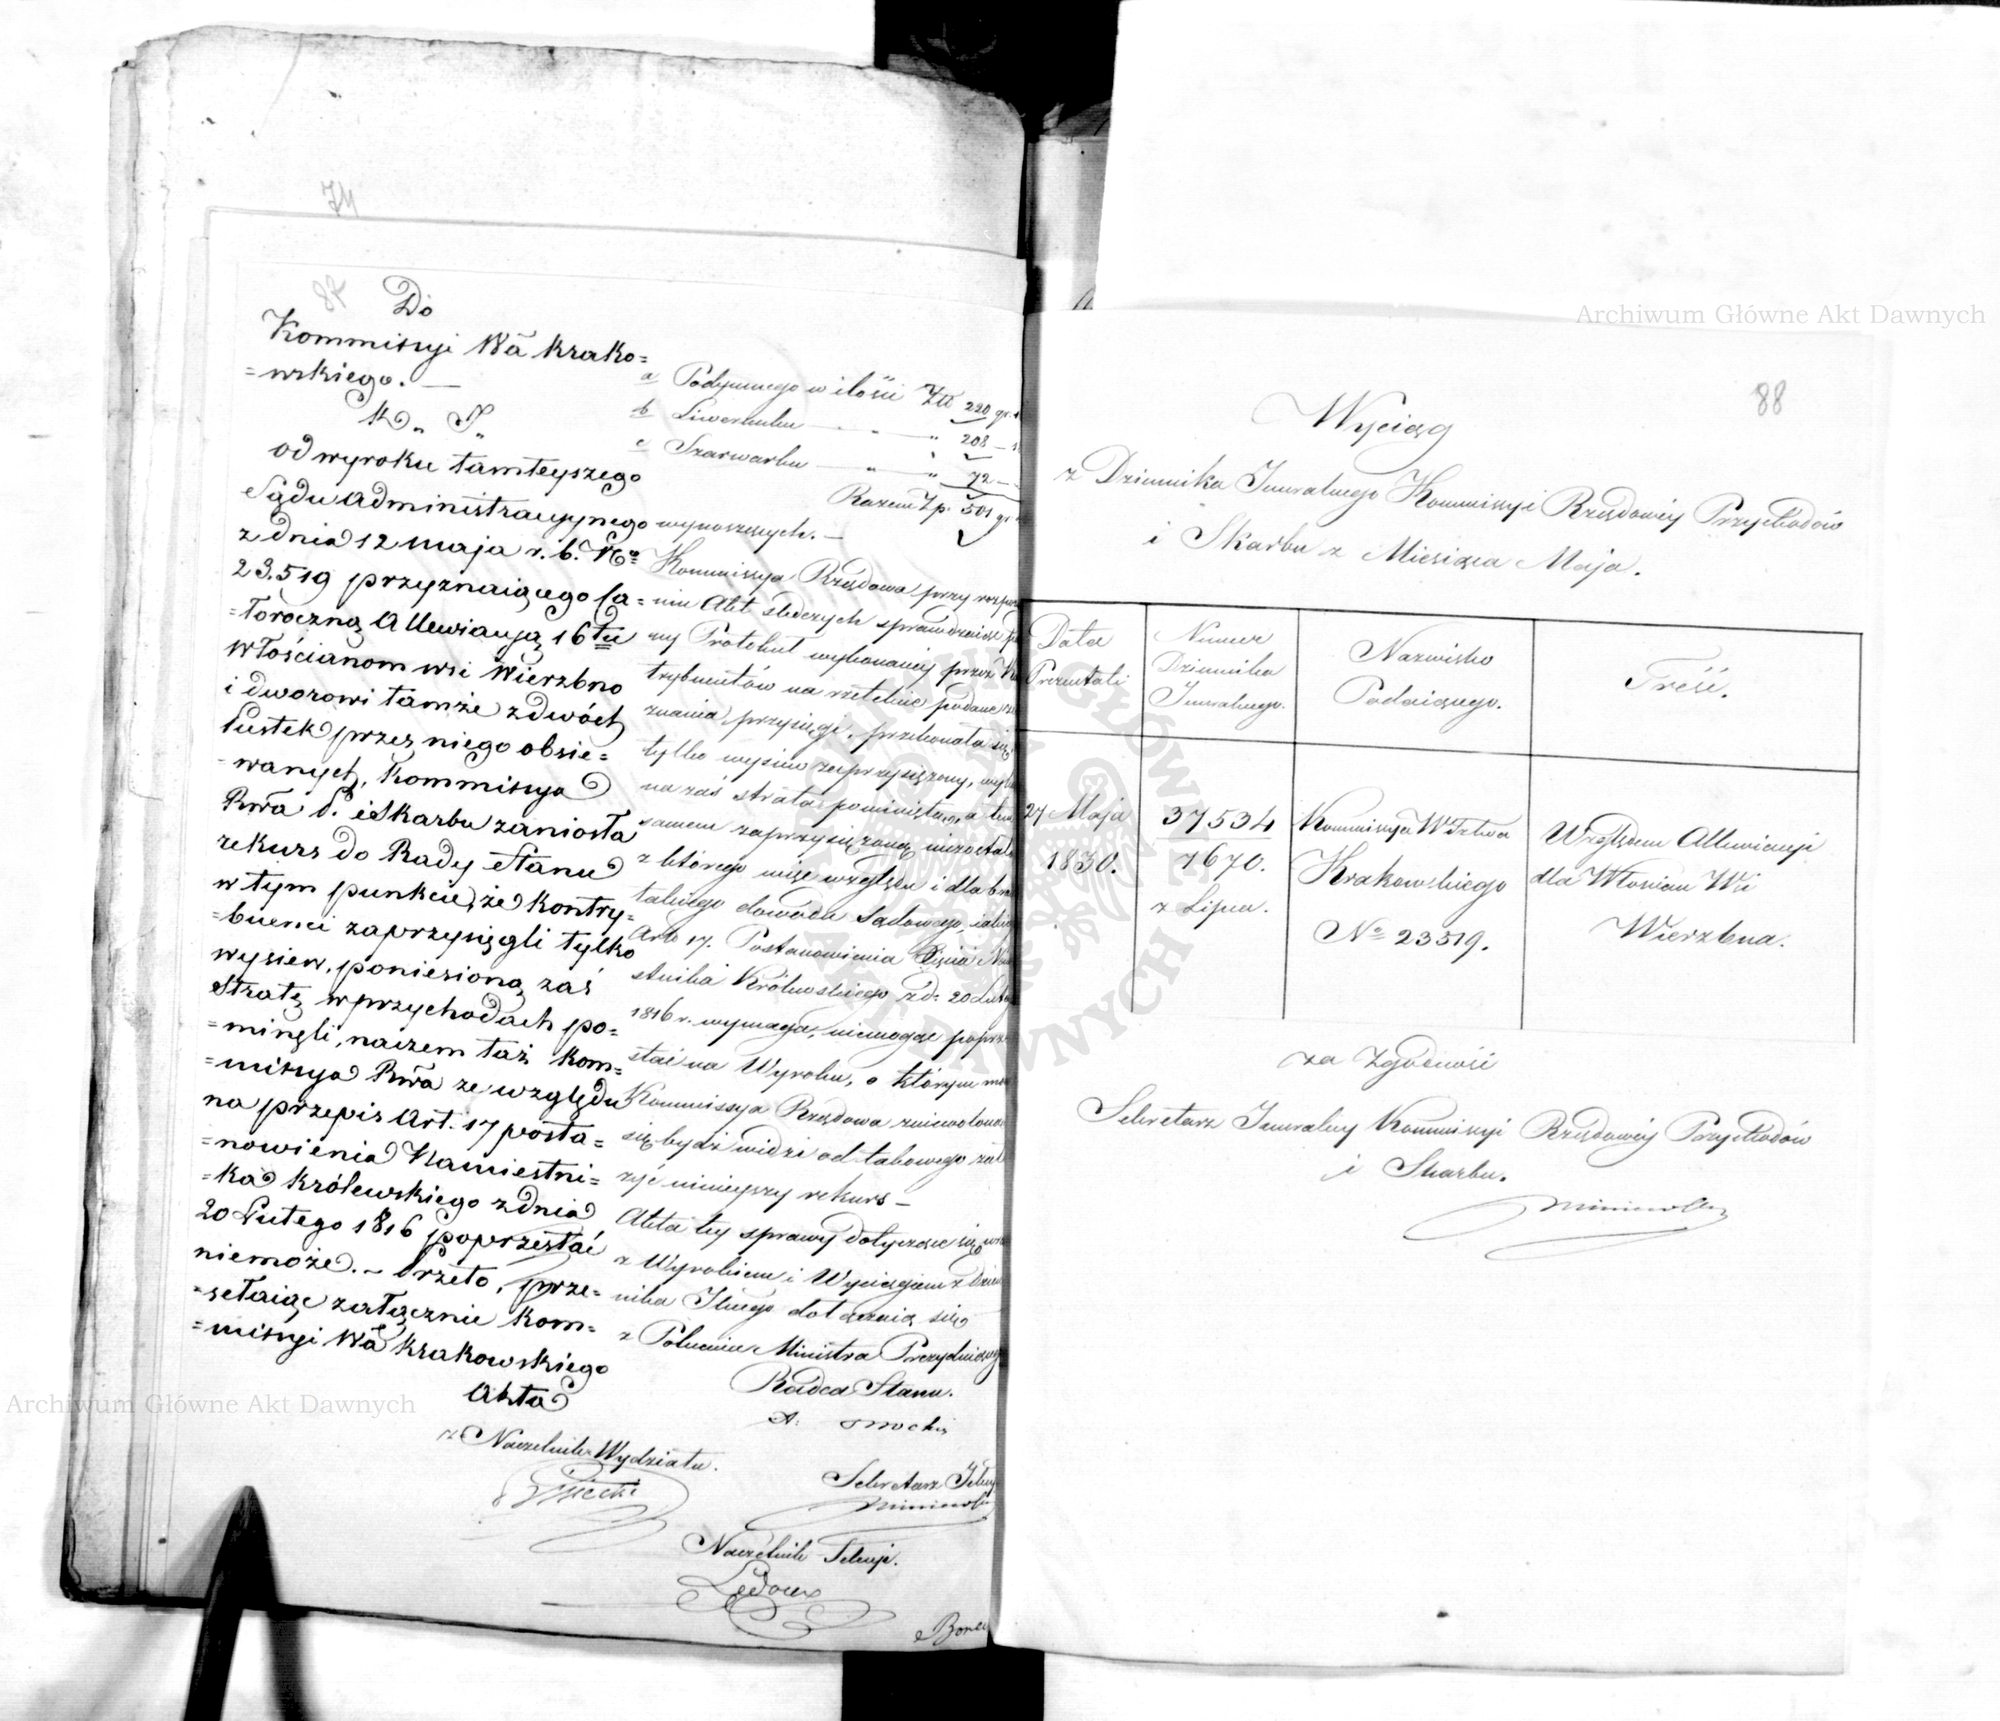 74
87
Do
Kommissyi Wa Krako=
=wskiego.
K. J.
od wyroku tamteyszego
Sądu Administracyjnego
z dnia 12 maja r. b. No
23.519 przyznaiącego ca=
=toroczną Allewiacyą 16tu
włościanom wsi Wierzbno
i dworowi tamże z dwóch
Pustek przez niego obsie=
=wanych, Kommissya
Rwa P. i Skarbu zaniosła
rekurs do Rady Stanu
w tym punkcie, że kontry=
=buenci zaprzysięgli tylko
wysiew, poniesioną zaś
stratę w przychodach po=
=minęli, na czem taż Kom=
=missya Rwa ze względu
na przepis Art. 17 posta=
=nowienia Namiestni=
=ka Królewskiego z dnia
20 Lutego 1816 poprzestać
niemoże. – Przeto, prze=
=sełaiąc załącznie Kom=
=missyi Wa Krakowskiego
Akta
z Naczelnik Wydziału.
a Podymnego w ilości Złł 220 gr.
b Liwerunku " 208 –
c Szarwarku " 72 –
Razem Zp. 501 gr
wynoszących. –
Kommissya Rządowa przy
niu Akt śledczych sprawdzaiąc
ny Protokuł wykonaney przez
trybuentów na rzetelne podane
znania przysięgi, przekonała się
tylko wysiew zaprzysiężony,
na zaś strata pominięta, a tem
samem zaprzysiężoną niezostała
z którego więc względu i dla
talnego dowodu Sądowego, iakiego
Art. 17. Postanowienia Xięcia
stnika Królewskiego z d. 20 Lutego
1816 r. wymaga, niemogąc poprze
stać na Wyroku, o którym
Kommissya Rządowa zniewoloną
się bydź widzi od takowego zało
żyć ninieyszy rekurs –
Akta tey sprawy dotyczące się
z Wyrokiem i Wyciągiem z Dzien
nika Jlnego dołączaią się
z Polecenia Ministra Prezyduiącego
Radca Stanu.
Sekretarz Jelny
Naczelnik Sekcyi.
Ledoux
88
Wyciąg
z Dziennika Jeneralnego Kommissyi Rządowéy Przychodów
i Skarbu z Miesiąca Maja.
Data
Prezentati
Numer
Dziennika
Jeneralnego.
Nazwisko
Podaiącego.
Treść.
27 Maja
1830.
37534
7670.
z Lipca.
Kommissya Wdztwa
Krakowskiego
No 23519.
Względem Allewiacyi
dla Włościan Wsi
Wierzbna.
za Zgodność
Sekretarz Jeneralny Kommissyi Rządowéy Przychodów
i Skarbu.
Archiwum Główne Akt Dawnych
Archiwum Główne Akt Dawnych